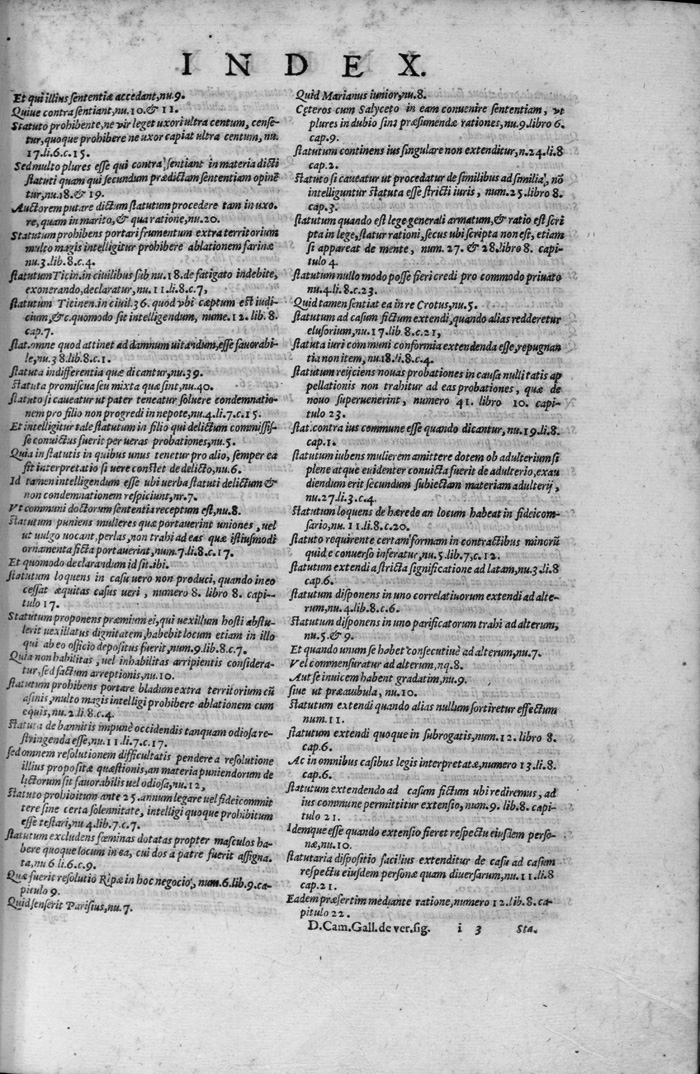 INDEX.
Et qui illius sententiæ accedant, nu.9.
Quiue contra sentiant, nu.10.& 11.
Statuto prohibente, ne vir leget uxori ultra centum, cense-
tur, quoque prohibere ne uxor capiat ultra centum, nu.
17.li.6.c.15.
Sed multo plures esse qui contra sentiant in materia dicti
statuti quam qui secundum prædictam sententiam opinē
tur, nu.18.& 19.
Auctorem putare dictum statutum procedere tam in uxo-
re, quam in marito, & qua ratione, nu.20.
Statutum prohibens portari frumentum extra territorium
multo magis intelligitur prohibere ablationem farinæ
nu.3.lib.8.c.4.
statutum Ticin.in ciuilibus sub nu.18.de fatigato indebite,
exonerando, declaratur, nu.11.li.8.c.7,
statutum Ticinen.in ciuil.36.quod vbi cæptum est iudi-
cium, &c.quomodo sit intelligendum, nume.12.lib.8.
cap.7.
stat.omne quod attinet ad damnum uitandum, esse fauorabi-
le, nu.38.lib.8.c.1.
statuta indifferentia quæ dicantur, nu.39.
statuta promiscua seu mixta quæ sint, nu.40.
statuto si caueatur ut pater teneatur soluere condemnatio-
nem pro filio non progredi in nepote, nu.4.li.7.c.15.
Et intelligitur tale statutum in filio qui delictum commisis-
se conuictus fuerit per ueras probationes, nu.5.
Quia in statutis in quibus unus tenetur pro alio, semper ea
fit interpretatio si uere constet de delicto, nu.6.
Id tamen intelligendum esse ubi uerba statuti delictum &
non condemnationem respiciunt, nr.7.
Vt communi doctorum sententia receptum est, nu.8.
Statutum puniens mulieres quæ portauerint uniones, uel
ut uulgo uocant, perlas, non trahi ad eas quæ istiusmodi
ornamenta ficta portauerint, num.7.li.8.c.17.
Et quomodo declarandum id sit.ibi.
statutum loquens in casu uero non produci, quando in eo
cessat æquitas casus ueri, numero 8. libro 8. capi-
tulo 17.
Statutum proponens præmium ei, qui uexillum hosti abstu-
lerit uexillatus dignitatem, habebit locum etiam in illo
qui ab eo officio depositus fuerit, num.9.lib.8.c.7.
Quia non habilitas, uel inhabilitas arripientis considera-
tur, sed factum arreptionis, nu.10.
statutum prohibens portare bladum extra territorium cū
asinis, multo magis intelligi prohibere ablationem cum
equis, nu.2.li.8.c.4.
statuta de bannitis impunè occidendis tanquam odiosa re-
stringenda esse, nu.11.li.7.c.17.
sed omnem resolutionem difficultatis pendere a resolutione
illius propositæ quæstionis, an materia puniendorum de
lictorum sit fauorabilis uel odiosa, nu.12,
Statuto prohibitum ante 25.annum legare uel fideicommit
tere sine certa solennitate, intelligi quoque prohibitum
esse testari, nu.4.lib.7.c.7.
Statutum excludens fœminas dotatas propter masculos ha-
bere quoque locum in ea, cui dos a patre fuerit assigna-
ta, nu 6.li.6.c.9.
Quæ fuerit resolutio Ripæ in hoc negocio, num.6.lib.9.ca-
pitulo 9.
Quid senserit Parisius, nu.7.
Quid Marianus iunior, nu.8.
Cęteros cum Salyceto in eam conuenire sententiam, vt
plures in dubio sint præsumendæ rationes, nu.9.libro 6.
cap.9.
statutum continens ius singulare non extenditur, n.24.li.8
cap.2.
Statuto si caueatur ut procedatur de similibus ad similia, nō
intelliguntur statuta esse stricti iuris, num.25.libro 8.
cap.3.
statutum quando est lege generali armatum, & ratio est scri
pta in lege, statur rationi, secus ubi scripta non est, etiam
si appareat de mente, num. 27. & 28.libro 8. capi-
tulo 4.
Statutum nullo modo posse fieri credi pro commodo priuato
nu.4.li.8.c.23.
Quid tamen sentiat ea in re Crotus, nu.5.
Statutum ad casum fictum extendi, quando alias redderetur
elusorium, nu.17.lib.8.c.21,
Statuta iuri communi conformia extendenda esse, repugnan
tia non item, nu.18.li.8.c.4.
Statutum reijciens nouas probationes in causa nullitatis ap
pellationis non trahitur ad eas probationes, quæ de
nouo superuenerint, numero 41. libro 10. capi-
tulo 23.
Stat.contra ius commune esse quando dicantur, nu.19.li.8.
cap.1.
statutum iubens mulierem amittere dotem ob adulterium si
plene atque euidenter conuicta fuerit de adulterio, exau
diendum erit secundum subiectam materiam adulterij,
nu.27.li.3.c.4.
Statutum loquens de hærede an locum habeat in fideicom-
sario, nu.11.li.8.c.20.
statuto requirente certam formam in contractibus minorū
quid e conuerso inferatur, nu.5.lib.7.c.12.
statutum extendi a stricta significatione ad latam, nu.3.li.8
cap.6.
statutum disponens in uno correlatiuorum extendi ad alte-
rum, nu.4.lib.8.c.6.
Statutum disponens in uno parificatorum trahi ad alterum,
nu.5.& 9.
Et quando unum se habet consecutiuè ad alterum, nu.7.
Vel commensuratur ad alterum, nq.8.
Aut se inuicem habent gradatim, nu.9.
siue ut præambula, nu.10.
Statutum extendi quando alias nullum sortiretur effectum
num.11.
statutum extendi quoque in subrogatis, num.12. libro 8.
cap.6.
Ac in omnibus casibus legis interpretatæ, numero 13.li.8.
cap.6.
Statutum extendendo ad casum fictum ubi rediremus, ad
ius commune permittitur extensio, num.9. lib.8. capi-
tulo 21.
Idemque esse quando extensio fieret respectu eiusdem perso-
næ, nu.10.
statutaria dispositio facilius extenditur de casu ad casum
respectu eiusdem personæ quam diuersarum, nu.11.li.8
cap.21.
Eadem præsertim mediante ratione, numero 12.lib.8.ca-
pitulo 22.
D.Cam.Gall.de ver.sig. i 3 Sta.